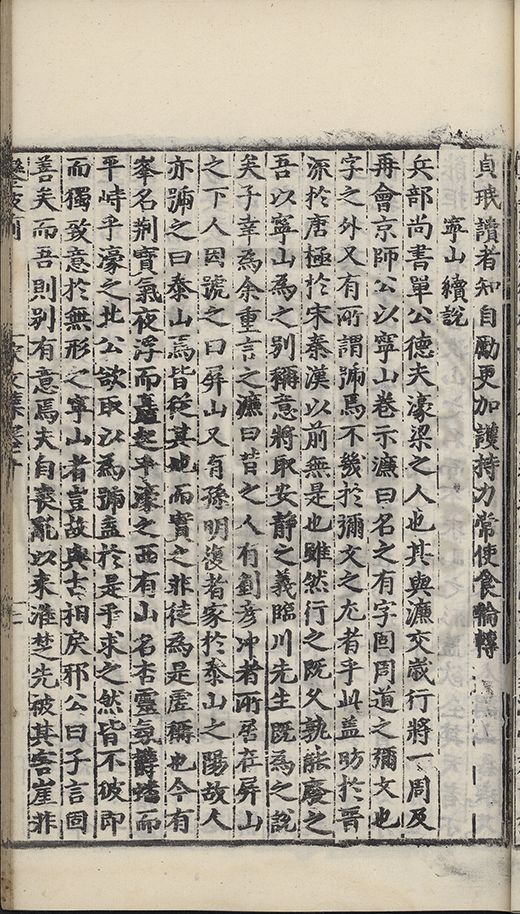 貞珉讀者知自勵更加護持力常使食輪轉
寧山續說
兵部尚書單公德夫濠梁之人也其與濂交歲行將一周及
再會京師公以寧山卷示濂曰名之有字固周道之彌文也
字之外又有所謂號焉不幾於彌文之尤者乎此蓋昉於晉
源於唐極於宋秦漢以前無是也雖然行之既久孰能廢之
吾以寧山為之別稱意將取安靜之義臨川先生既為之說
矣子幸為余重言之濂曰昔之人有劉彥冲者所居在屏山
之下人因號之曰屏山又有孫明復者家於泰山之陽故人
亦號之曰泰山焉皆從其地而實之非徒為是虛稱也今有
峯名荊寶氣夜浮而直起乎濠之西有山名杏靈氛欝蟠而
平峙乎濠之北公欲取以為號盍於是乎求之然皆不彼即
而獨致意於無形之寧山者豈故與古相戾邪公曰子言固
善矣而吾則別有意焉夫自喪亂以來淮楚先被其害崖非